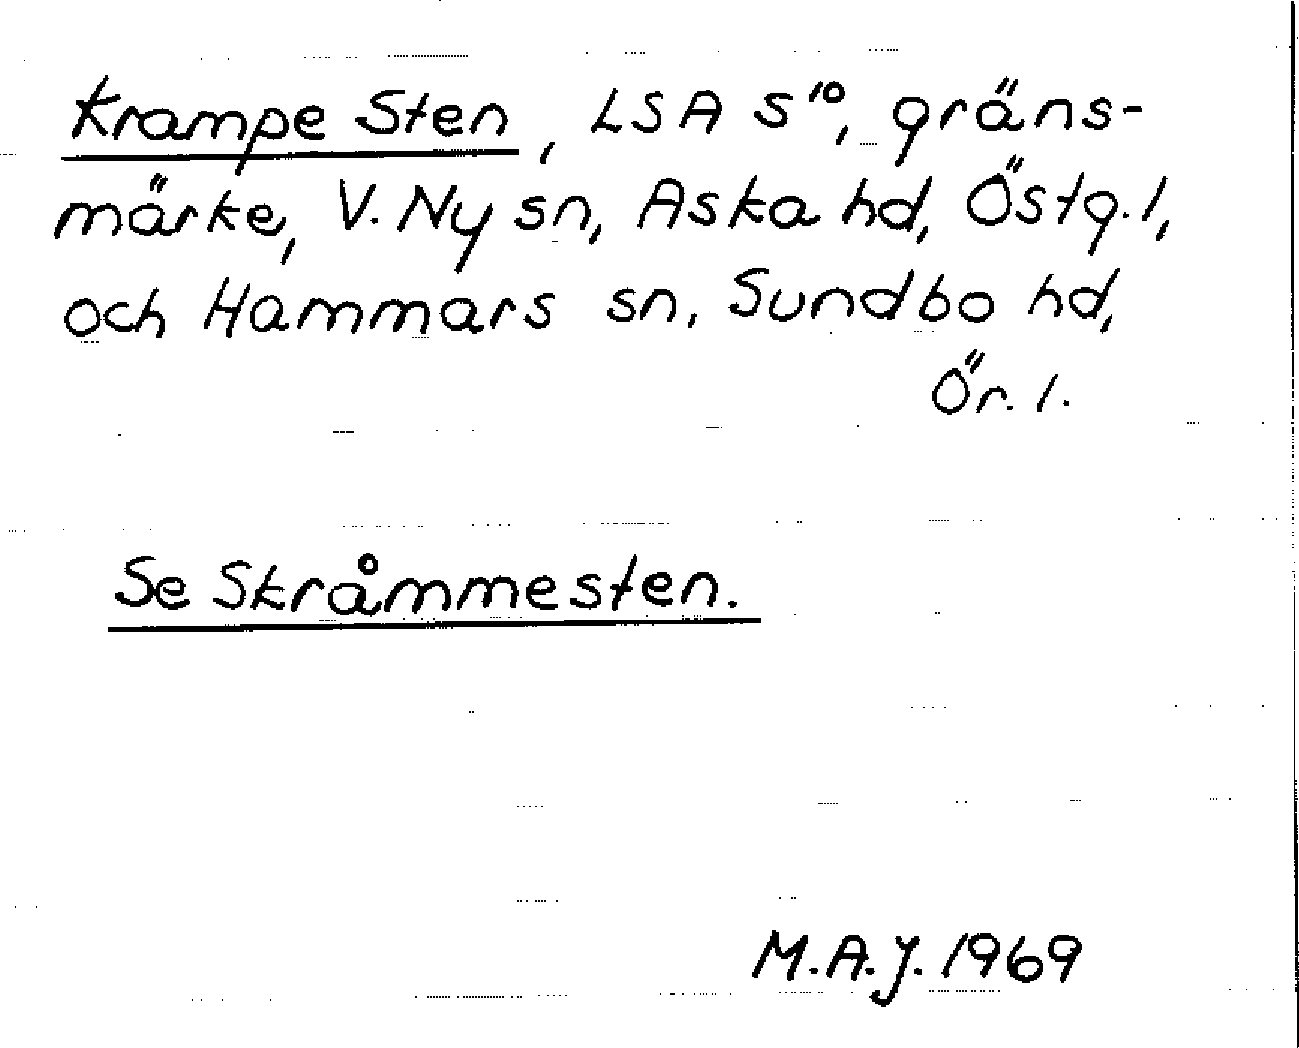 Krampe Sten, LSA S¹⁰, gräns-
märke, V. Ny sn, Aska hd, Östg. l,
och Hammars sn, Sundbo hd,
Ör. l.
Se Skråmmesten.
M.A.J. 1969